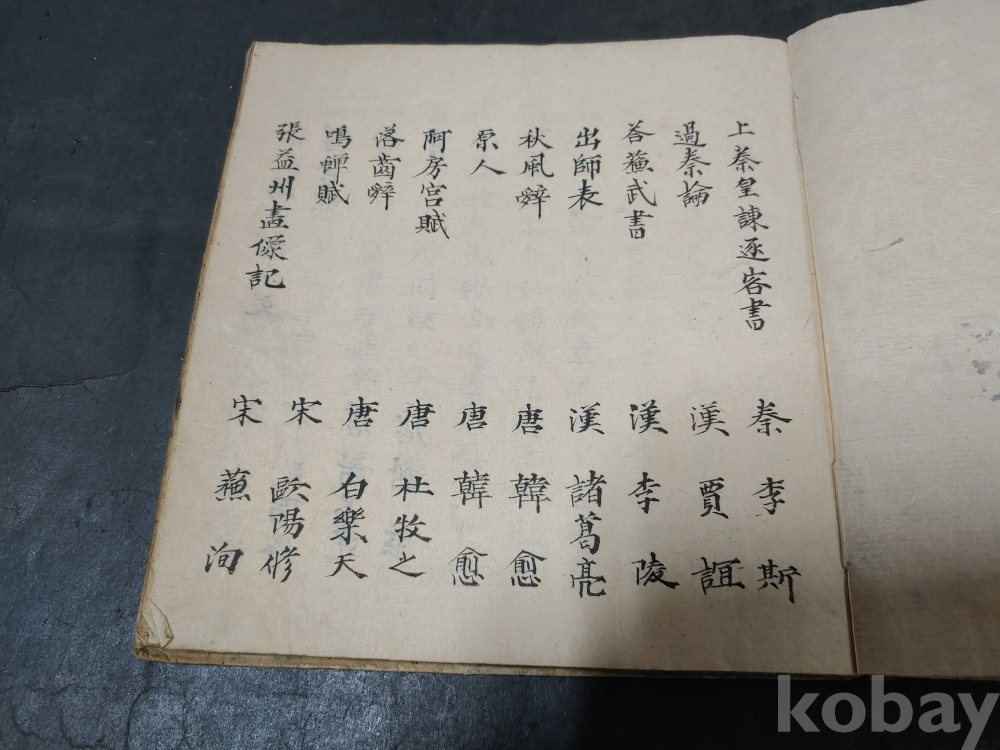 上秦皇諫逐客書 秦 李斯
過秦論 漢 賈誼
荅蘓武書 漢 李陵
出師表 漢 諸葛亮
秋風辭 唐 韓愈
原人 唐 韓愈
阿房宮賦 唐 杜牧之
落齒辭 唐 白樂天
鳴蟬賦 宋 歐陽修
張益州畫像記 宋 蘓洵
kobay